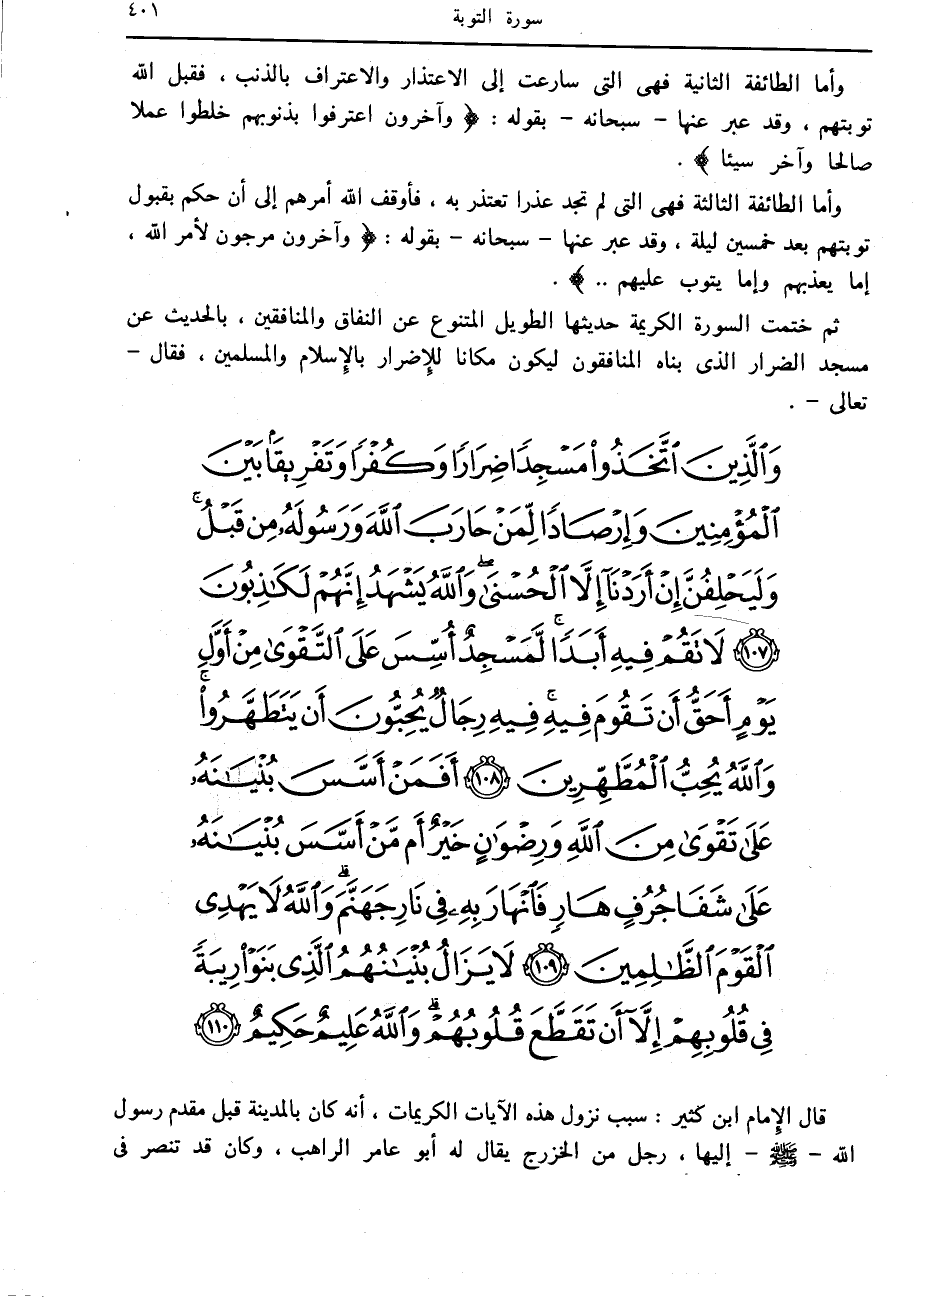 سورة التوبة ٤٠١
وأما الطائفة الثانية فهى التى سارعت إلى الاعتذار والاعتراف بالذنب ، فقبل الله
توبتهم ، وقد عبر عنها – سبحانه – بقوله : ﴿ وآخرون اعترفوا بذنوبهم خلطوا عملا
صالحا وآخر سيئا ﴾ .
وأما الطائفة الثالثة فهى التى لم تجد عذرا تعتذر به ، فأوقف الله أمرهم إلى أن حكم بقبول
توبتهم بعد خمسين ليلة ، وقد عبر عنها – سبحانه – بقوله : ﴿ وآخرون مرجون لأمر الله ،
إما يعذبهم وإما يتوب عليهم .. ﴾ .
ثم ختمت السورة الكريمة حديثها الطويل المتنوع عن النفاق والمنافقين ، بالحديث عن
مسجد الضرار الذى بناه المنافقون ليكون مكانا للإضرار بالإسلام والمسلمين ، فقال –
تعالى – .
وَٱلَّذِينَ ٱتَّخَذُواْ مَسْجِدًا ضِرَارًا وَكُفْرًا وَتَفْرِيقًۢا بَيْنَ
ٱلْمُؤْمِنِينَ وَإِرْصَادًا لِّمَنْ حَارَبَ ٱللَّهَ وَرَسُولَهُۥ مِن قَبْلُ ۚ
وَلَيَحْلِفُنَّ إِنْ أَرَدْنَآ إِلَّا ٱلْحُسْنَىٰ ۖ وَٱللَّهُ يَشْهَدُ إِنَّهُمْ لَكَٰذِبُونَ
١٠٧ لَا تَقُمْ فِيهِ أَبَدًا ۚ لَّمَسْجِدٌ أُسِّسَ عَلَى ٱلتَّقْوَىٰ مِنْ أَوَّلِ
يَوْمٍ أَحَقُّ أَن تَقُومَ فِيهِ ۚ فِيهِ رِجَالٌ يُحِبُّونَ أَن يَتَطَهَّرُواْ ۚ
وَٱللَّهُ يُحِبُّ ٱلْمُطَّهِّرِينَ ١٠٨ أَفَمَنْ أَسَّسَ بُنْيَٰنَهُۥ
عَلَىٰ تَقْوَىٰ مِنَ ٱللَّهِ وَرِضْوَٰنٍ خَيْرٌ أَم مَّنْ أَسَّسَ بُنْيَٰنَهُۥ
عَلَىٰ شَفَا جُرُفٍ هَارٍ فَٱنْهَارَ بِهِۦ فِى نَارِ جَهَنَّمَ ۗ وَٱللَّهُ لَا يَهْدِى
ٱلْقَوْمَ ٱلظَّٰلِمِينَ ١٠٩ لَا يَزَالُ بُنْيَٰنُهُمُ ٱلَّذِى بَنَوْاْ رِيبَةً
فِى قُلُوبِهِمْ إِلَّآ أَن تَقَطَّعَ قُلُوبُهُمْ ۗ وَٱللَّهُ عَلِيمٌ حَكِيمٌ ١١٠
قال الإمام ابن كثير : سبب نزول هذه الآيات الكريمات ، أنه كان بالمدينة قبل مقدم رسول
الله – ﷺ – إليها ، رجل من الخزرج يقال له أبو عامر الراهب ، وكان قد تنصر فى